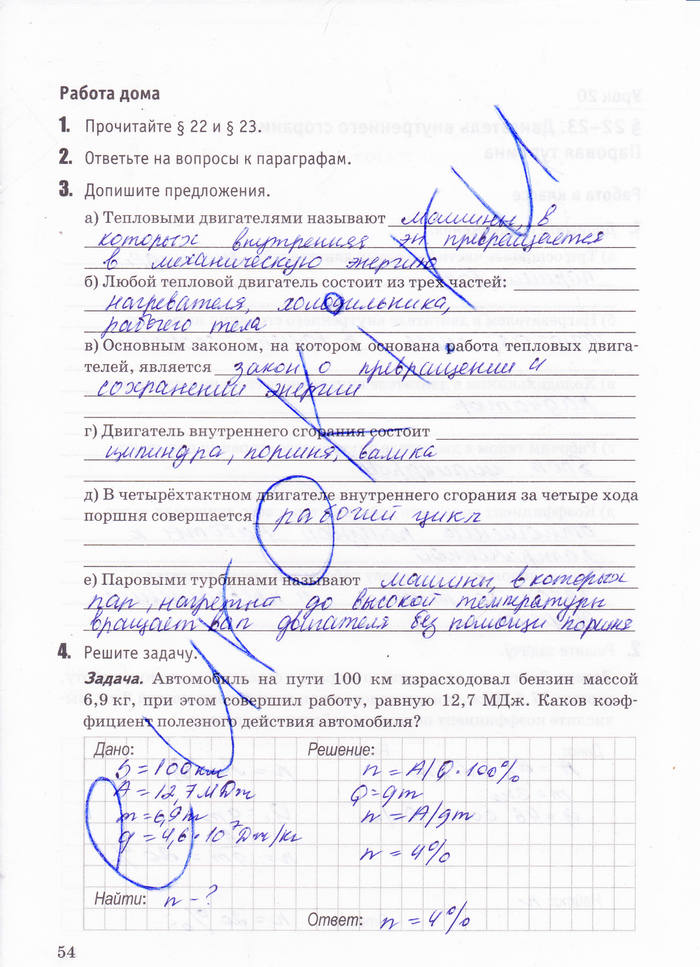 Работа дома
1. Прочитайте § 22 и § 23.
2. Ответьте на вопросы к параграфам.
3. Допишите предложения.
а) Тепловыми двигателями называют машины, в
которых внутренняя эн превращается
в механическую энергию
б) Любой тепловой двигатель состоит из трех частей:
нагревателя, холодильника,
рабочего тела
в) Основным законом, на котором основана работа тепловых двига-
телей, является закон о превращении и
сохранении энергии
г) Двигатель внутреннего сгорания состоит
цилиндра, поршня, валика
д) В четырёхтактном двигателе внутреннего сгорания за четыре хода
поршня совершается рабочий цикл
е) Паровыми турбинами называют машины, в которых
пар, нагретый до высокой температуры
вращает вал двигателя без помощи поршня
4. Решите задачу.
Задача. Автомобиль на пути 100 км израсходовал бензин массой
6,9 кг, при этом совершил работу, равную 12,7 МДж. Каков коэф-
фициент полезного действия автомобиля?
Дано: Решение:
S = 100 км n = A/Q · 100%
A = 12,7 МДж Q = qm
m = 6,9 т n = A/qm
q = 4,6 · 10⁷ Дж/кг
n = 4%
Найти: n - ?
Ответ: n = 4%
54